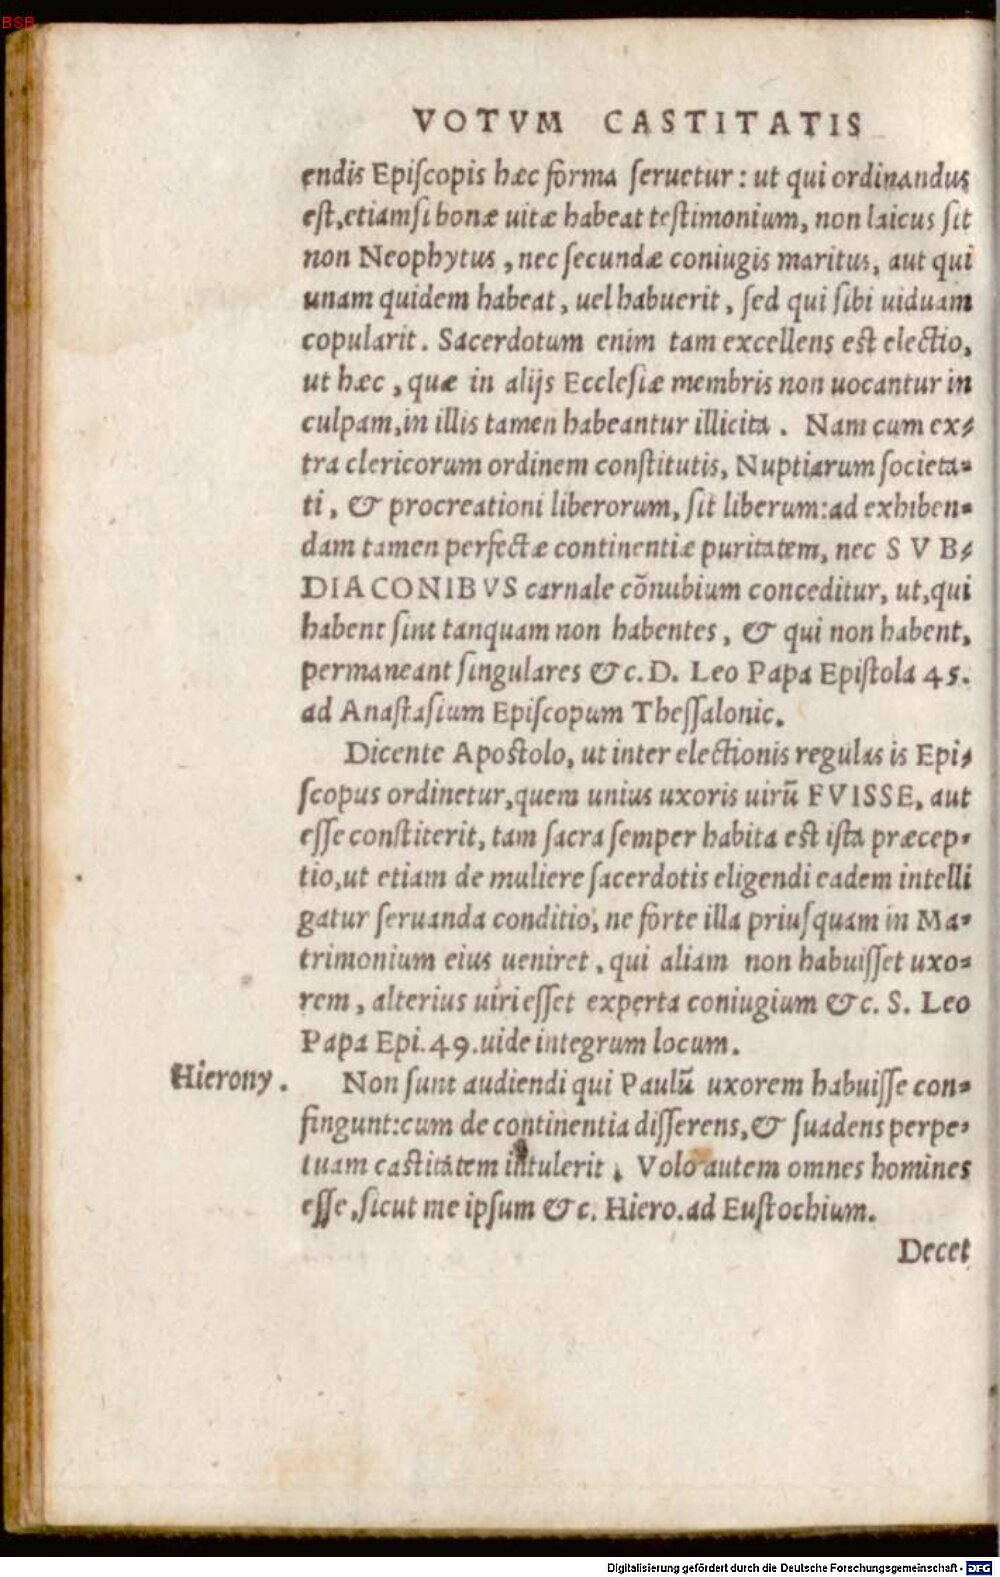 BSB
VOTVM CASTITATIS
endis Epiſcopis hæc forma ſeruetur: ut qui ordinandus
eſt, etiamſi bonæ uitæ habeat teſtimonium, non laicus ſit
non Neophytus, nec ſecundæ coniugis maritus, aut qui
unam quidem habeat, uel habuerit, ſed qui ſibi uiduam
copularit. Sacerdotum enim tam excellens eſt electio,
ut hæc, quæ in alijs Eccleſiæ membris non uocantur in
culpam, in illis tamen habeantur illicita. Nam cum ex-
tra clericorum ordinem conſtitutis, Nuptiarum ſocieta-
ti, & procreationi liberorum, ſit liberum: ad exhiben-
dam tamen perfectæ continentiæ puritatem, nec SVB-
DIACONIBVS carnale cõnubium conceditur, ut, qui
habent ſint tanquam non habentes, & qui non habent,
permaneant ſingulares &c. D. Leo Papa Epiſtola 45.
ad Anaſtaſium Epiſcopum Theſſalonic.
Dicente Apoſtolo, ut inter electionis regulas is Epi-
ſcopus ordinetur, quem unius uxoris uirũ FVISSE, aut
eſſe conſtiterit, tam ſacra ſemper habita eſt iſta præcep-
tio, ut etiam de muliere ſacerdotis eligendi eadem intelli
gatur ſeruanda conditio, ne forte illa priuſquam in Ma-
trimonium eius ueniret, qui aliam non habuiſſet uxo-
rem, alterius uiri eſſet experta coniugium &c. S. Leo
Papa Epi. 49. uide integrum locum.
Hierony.
Non ſunt audiendi qui Paulũ uxorem habuiſſe con-
fingunt: cum de continentia diſſerens, & ſuadens perpe-
tuam caſtitatem intulerit, Volo autem omnes homines
eſſe, ſicut me ipſum &c. Hiero. ad Euſtochium.
Decet
Digitalisierung gefördert durch die Deutsche Forschungsgemeinschaft - DFG